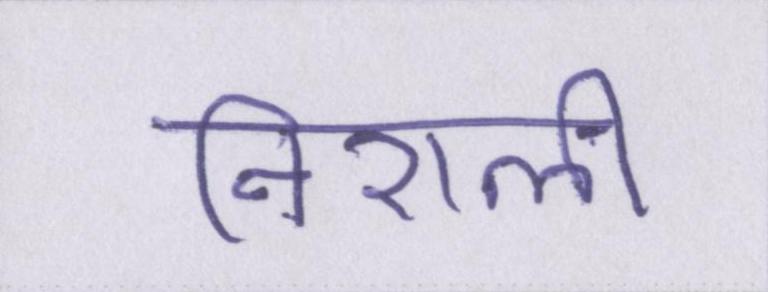 निराली